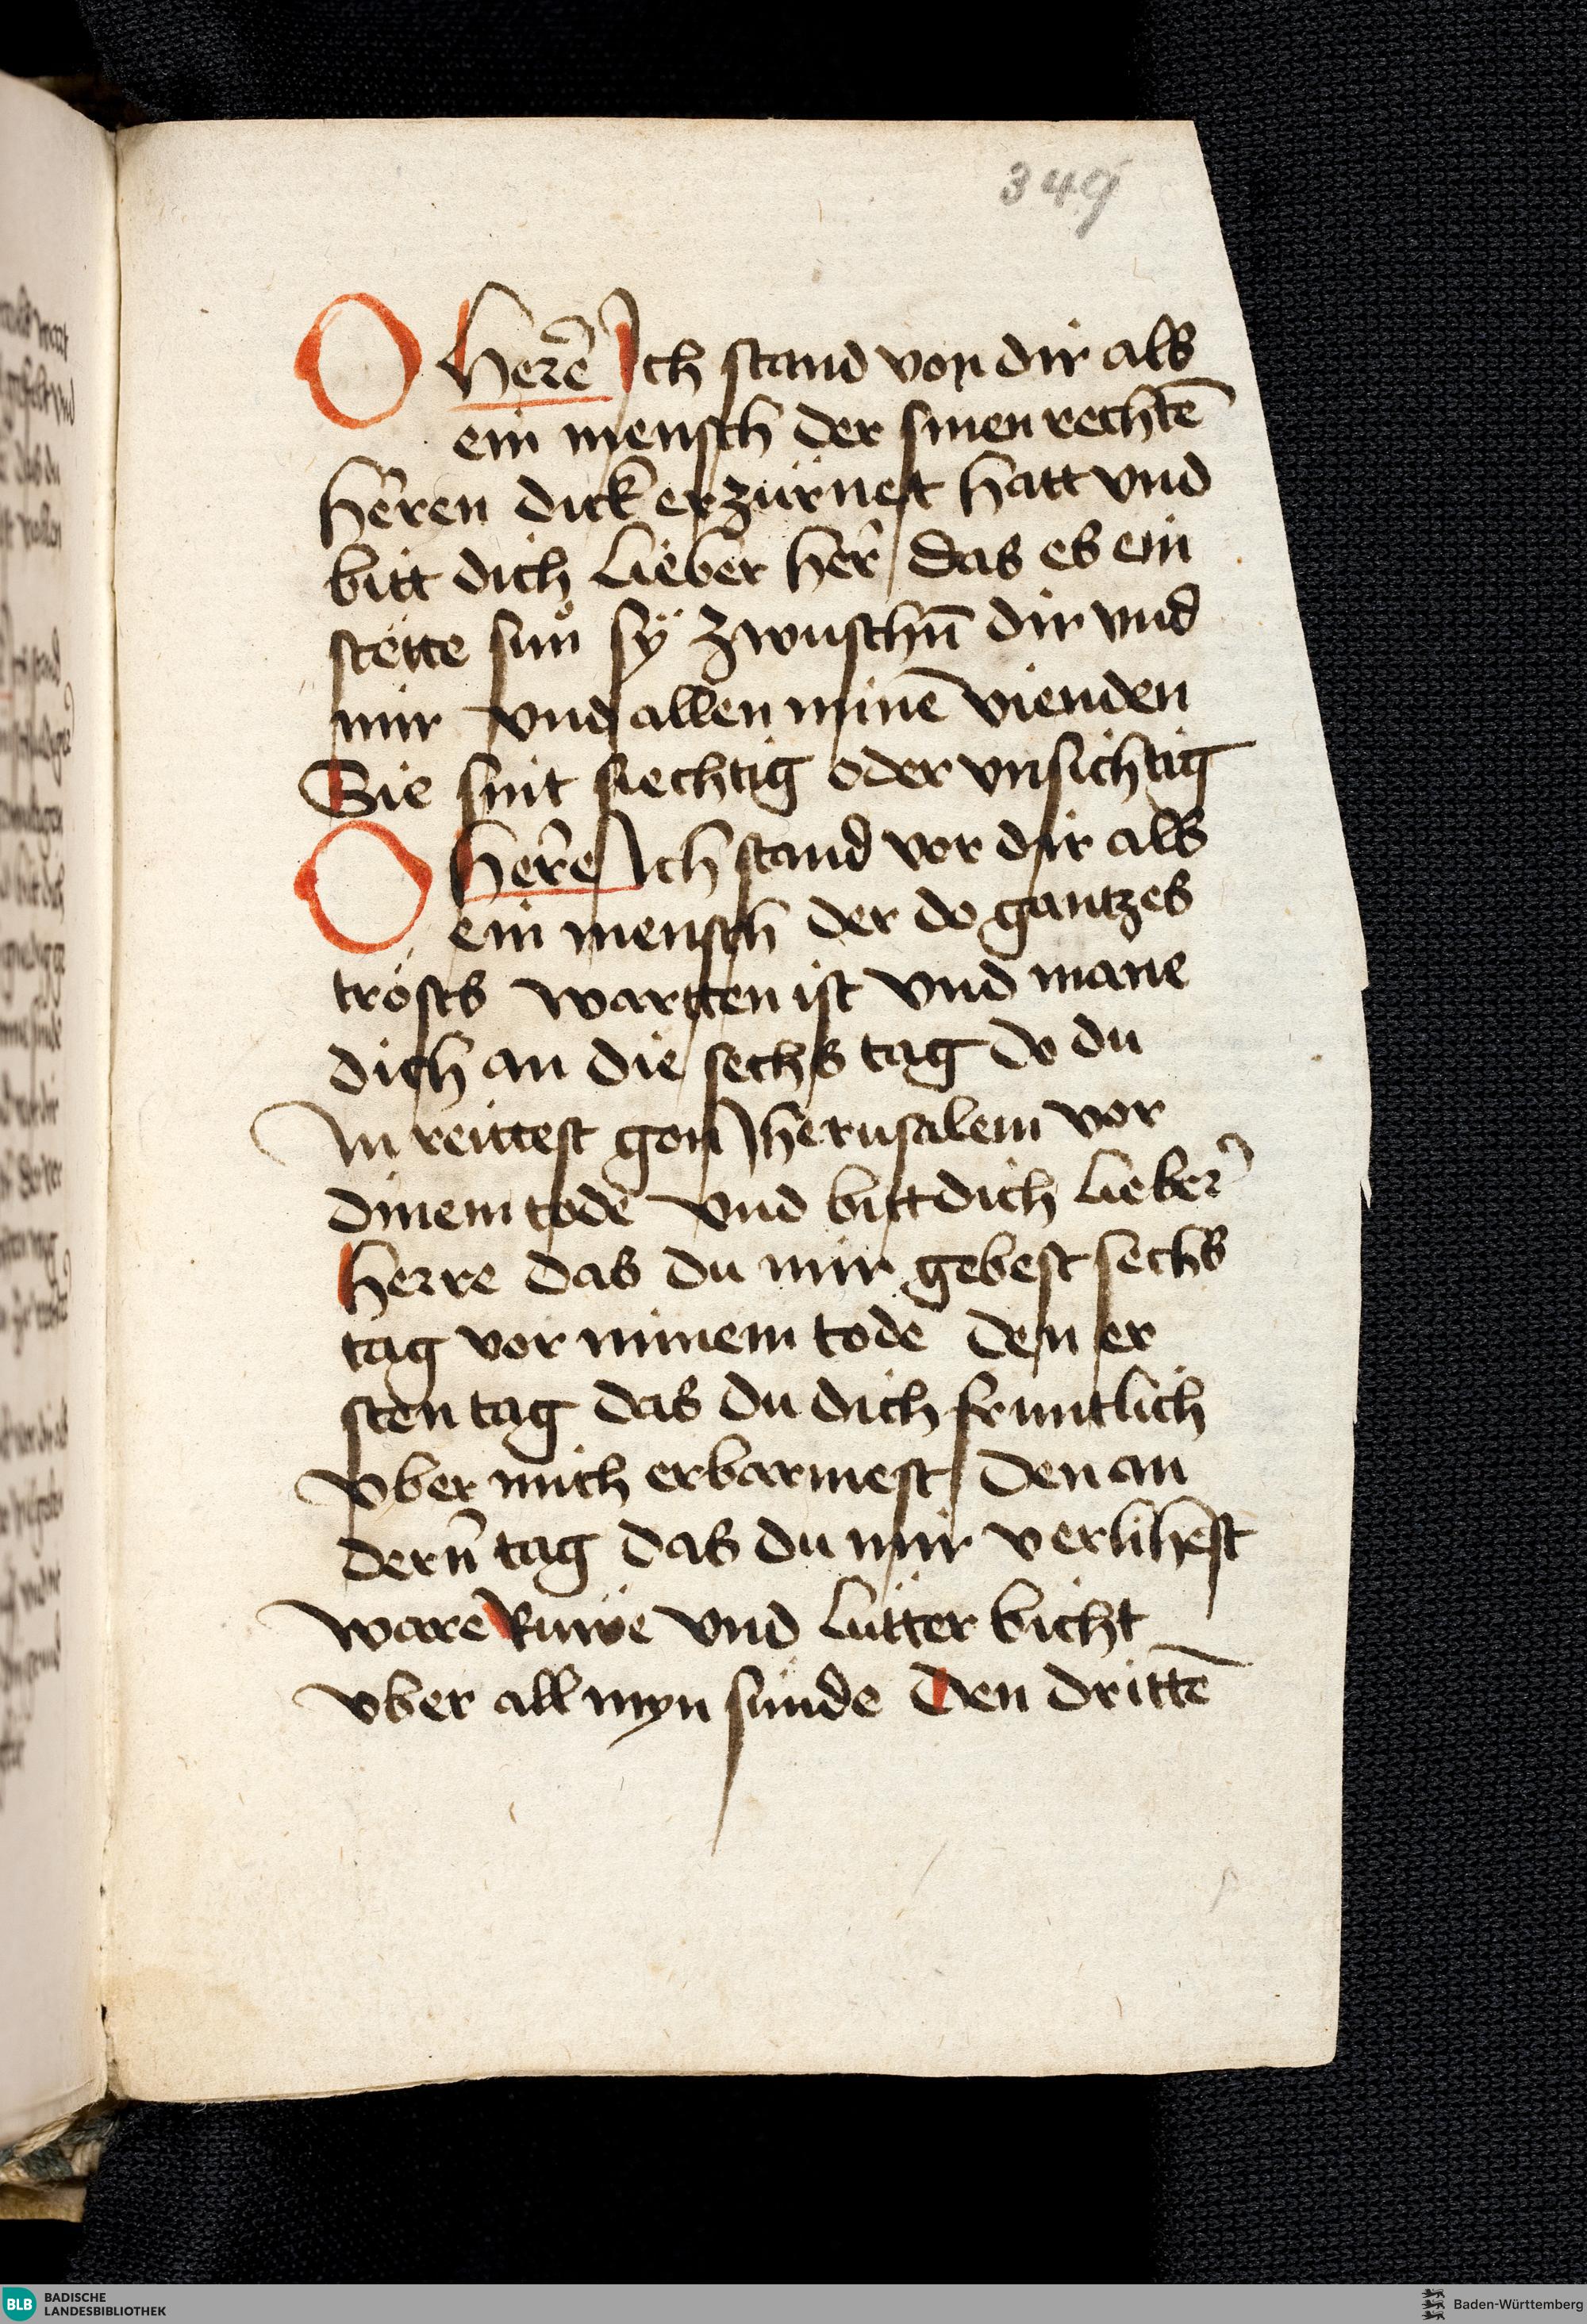 349
O Herē Ich stand von dir als
ein mensch der sinen rechtē
heren dick erzürnet hatt vnd
bitt dich lieber her das es ein
stette sün sÿ zwuschn̄ dir vnd
mir vnd allen minē vienden
Sie sint siechtig oder vnsichtig
O here Ich stand vor dir als
ein mensch der do gantzes
trösts wartten ist vnd mane
dich an die sechs tag do du
In reittest gon Jherusalem vor
dinem tode vnd bitt dich lieber
herre das du mir gebest sechs
tag vor minem tode den er
sten tag das du dich fruntlich
vber mich erbarmest den an
dern̄ tag das du mir verlihest
ware Ruwe vnd lutter bicht
vber all myn sünde Den drittē
BLB BADISCHE
LANDESBIBLIOTHEK
Baden-Württemberg